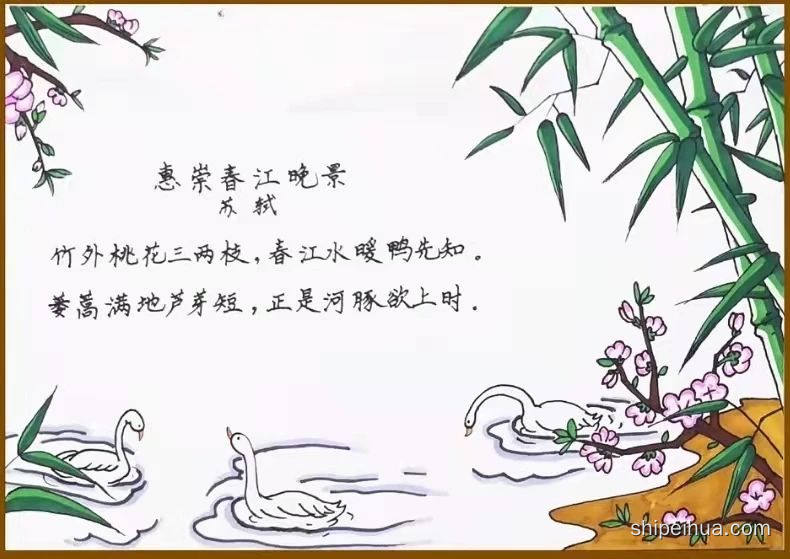 惠崇春江晚景
苏轼
竹外桃花三两枝,春江水暖鸭先知。
蒌蒿满地芦芽短,正是河豚欲上时.
shipeihua.com